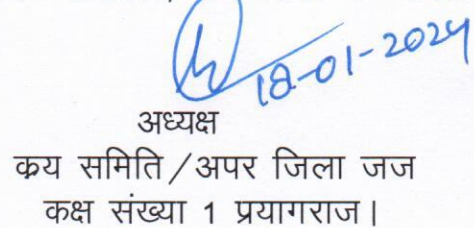 18-01-2024
अध्यक्ष
क्रय समिति/अपर जिला जज
कक्ष संख्या 1 प्रयागराज।